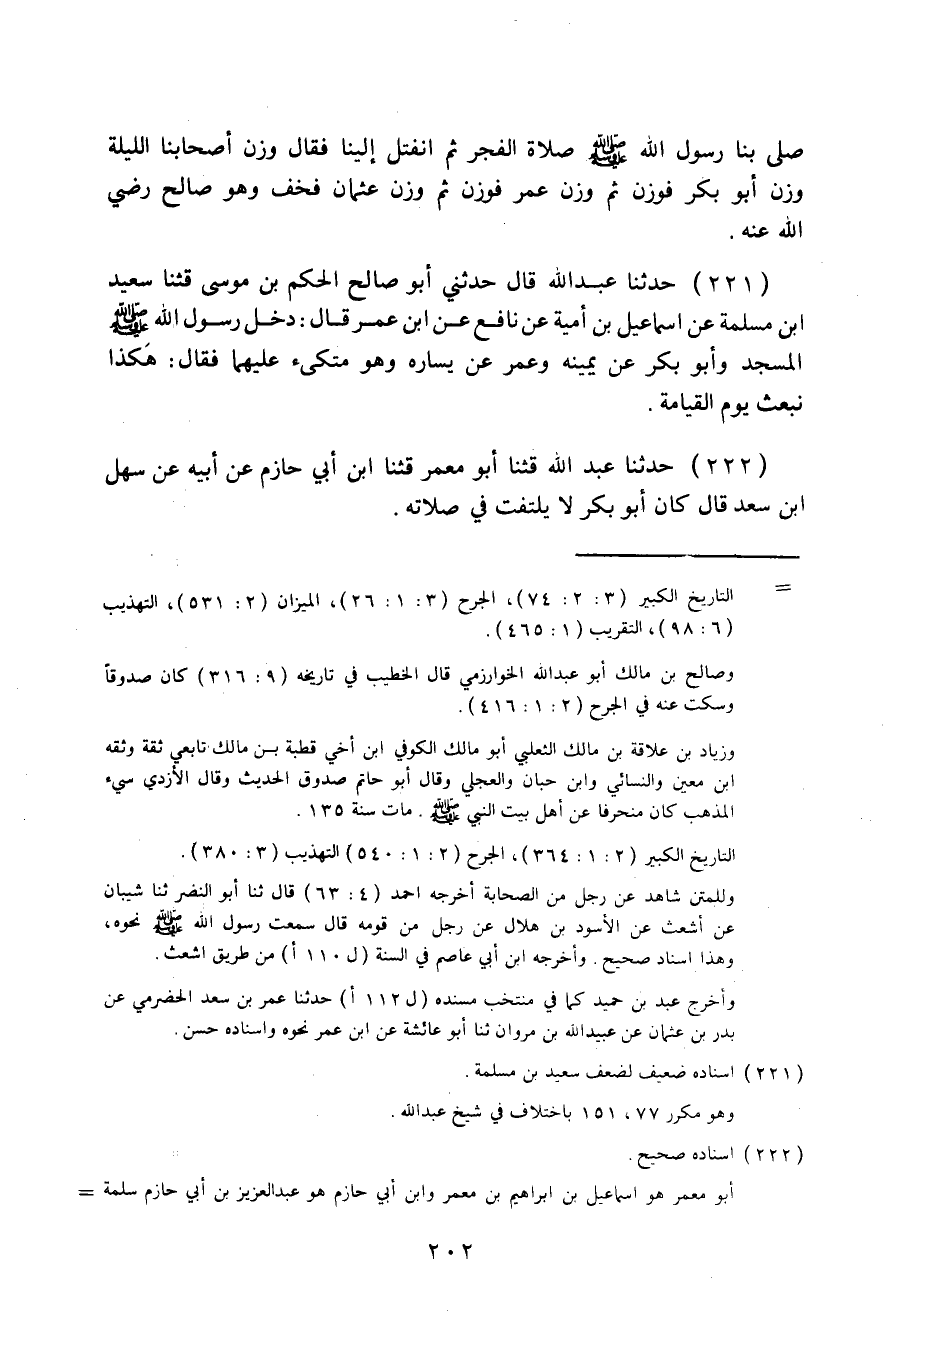 صلى بنا رسول الله ﷺ صلاة الفجر ثم انفتل إلينا فقال وزن أصحابنا الليلة
وزن أبو بكر فوزن ثم وزن عمر فوزن ثم وزن عثمان فخف وهو صالح رضي
الله عنه .
(٢٢١) حدثنا عبدالله قال حدثني أبو صالح الحكم بن موسى قثنا سعيد
ابن مسلمة عن اسماعيل بن أمية عن نافع عن ابن عمر قال : دخل رسول الله ﷺ
المسجد وأبو بكر عن يمينه وعمر عن يساره وهو متكىء عليهما فقال : هَكذا
نبعث يوم القيامة .
(٢٢٢) حدثنا عبد الله قثنا أبو معمر قثنا ابن أبي حازم عن أبيه عن سهل
ابن سعد قال كان أبو بكر لا يلتفت في صلاته .
= التاريخ الكبير (٣ : ٢ : ٧٤)، الجرح (٣ : ١ : ٢٦)، الميزان (٢ : ٥٣١)، التهذيب
(٦ : ٩٨)، التقريب (١ : ٤٦٥).
وصالح بن مالك أبو عبدالله الخوارزمي قال الخطيب في تاريخه (٩ : ٣١٦) كان صدوقاً
وسكت عنه في الجرح (٢ : ١ : ٤١٦).
وزياد بن علاقة بن مالك الثعلبي أبو مالك الكوفي ابن أخي قطبة بن مالك تابعي ثقة وثقه
ابن معين والنسائي وابن حبان والعجلي وقال أبو حاتم صدوق الحديث وقال الأزدي سيء
المذهب كان منحرفا عن أهل بيت النبي ﷺ . مات سنة ١٣٥ .
التاريخ الكبير (٢ : ١ : ٣٦٤)، الجرح (٢ : ١ : ٥٤٠) التهذيب (٣ : ٣٨٠).
وللمتن شاهد عن رجل من الصحابة أخرجه احمد (٤ : ٦٣) قال ثنا أبو النضر ثنا شيبان
عن أشعث عن الأسود بن هلال عن رجل من قومه قال سمعت رسول الله ﷺ نحوه،
وهذا اسناد صحيح . وأخرجه ابن أبي عاصم في السنة (ل ١١٠ أ) من طريق اشعث.
وأخرج عبد بن حميد كما في منتخب مسنده (ل ١١٢ أ) حدثنا عمر بن سعد الحضرمي عن
بدر بن عثمان عن عبيدالله بن مروان ثنا أبو عائشة عن ابن عمر نحوه واسناده حسن .
(٢٢١) اسناده ضعيف لضعف سعيد بن مسلمة .
وهو مكرر ٧٧، ١٥١ باختلاف في شيخ عبدالله .
(٢٢٢) اسناده صحيح .
أبو معمر هو اسماعيل بن ابراهيم بن معمر وابن أبي حازم هو عبدالعزيز بن أبي حازم سلمة =
٢٠٢